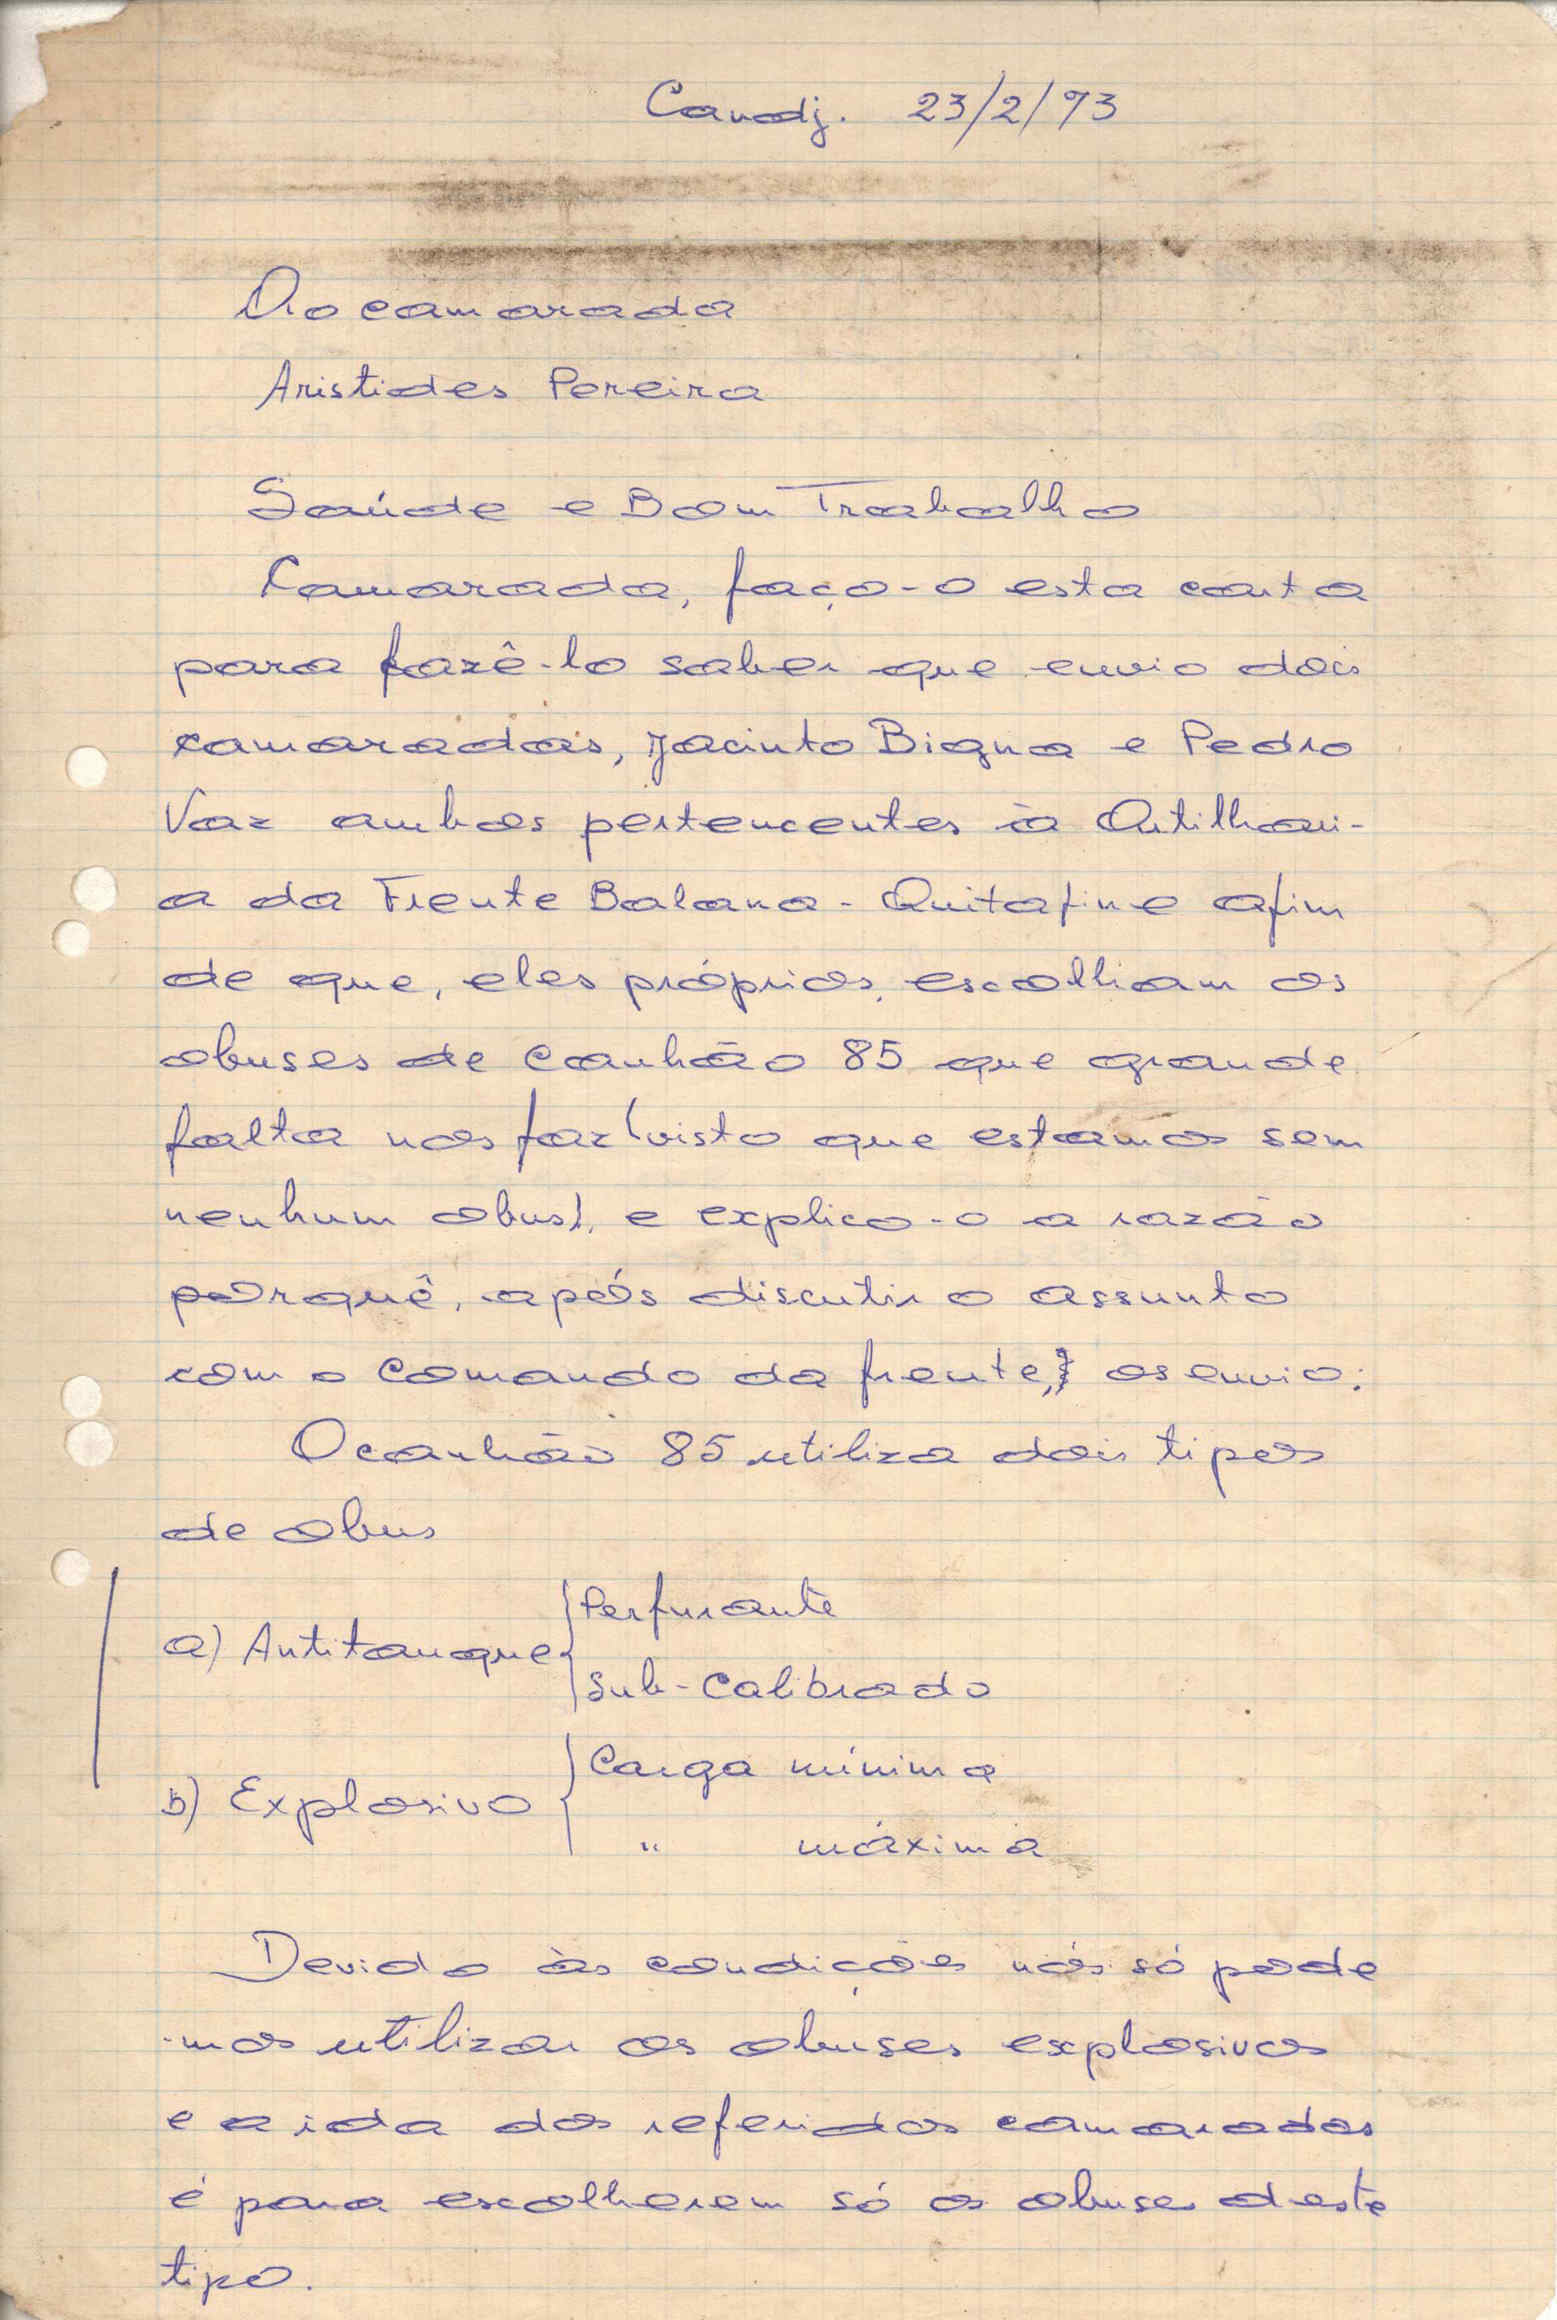 Canadj. 23/2/73
Ao camarada
Aristides Pereira
Saúde e Bom Trabalho
Camarada, faço-o esta carta
para fazê-lo saber que envio dois
camaradas, Jacinto Bigna e Pedro
Vaz ambos pertencentes à Artilhari-
a da Frente Balana - Quitafine afim
de que, eles próprios, escolham os
obuses de canhão 85 que grande
falta nos faz (visto que estamos sem
nenhum obus), e explico-o a razão
porquê, após discutir o assunto
com o Comando da frente, os envio:
O canhão 85 utiliza dois tipos
de obus
a) Antitanque { Perfurante
Sub-Calibrado
b) Explosivo { Carga mínima
" máxima
Devido às condições nós só pode
-mos utilizar os obuses explosivos
e a ida dos referidos camaradas
é para escolherem só os obuses deste
tipo.